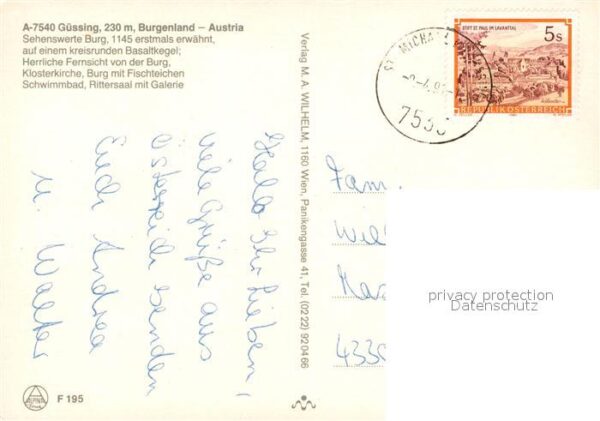 A-7540 Güssing, 230 m, Burgenland – Austria
Sehenswerte Burg, 1145 erstmals erwähnt,
auf einem kreisrunden Basaltkegel;
Herrliche Fernsicht von der Burg,
Klosterkirche, Burg mit Fischteichen
Schwimmbad, Rittersaal mit Galerie
Hallo Ihr Lieben!
Viele Grüße aus
Österreich senden
Euch Andrea
u. Walter
Verlag M. A. WILHELM, 1160 Wien, Panikengasse 41, Tel. (0222) 92 04 66
STIFT ST. PAUL IM LAVANTTAL
5s
REPUBLIK ÖSTERREICH
ST. MICHAEL
Fam.
433
privacy protection
Datenschutz
ALPINA
F 195